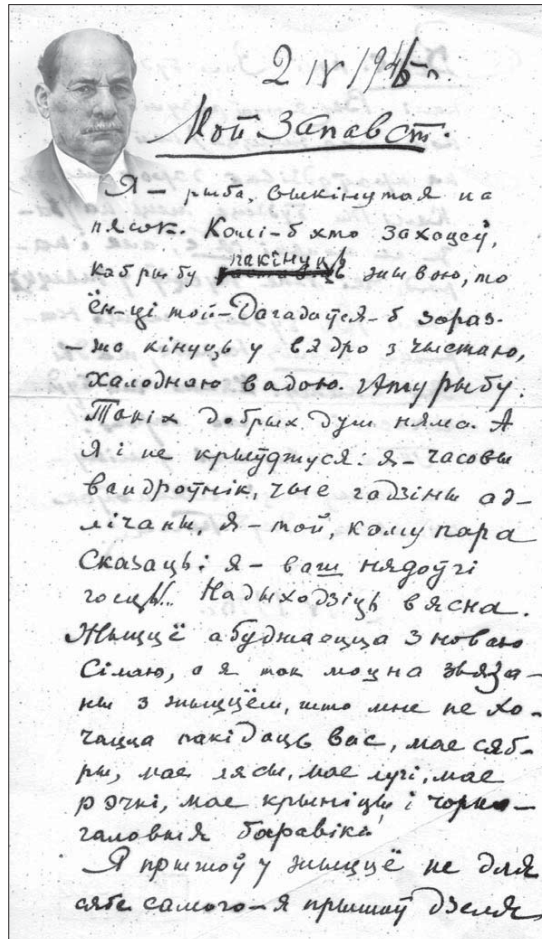 2 IV 1946 г
Мой Запавет.
Я – рыба, выкінутая на
пясок. Калі-б хто захацеў,
каб рыбу пакінуць жывою, то
ён-ці той-Дагадаўся-б зараз-
-жа кінуць у вядро з чыстаю,
халоднаю вадою. гэту рыбу.
Такіх добрых душ няма. А
я і не крыўджуся: я – часовы
вандроўнік, чые гадзіны ад-
лічаны, я – той, каму пара
сказаць: я – ваш нядоўгі
госць!.. Надыходзіць вясна.
Жыццё абуджаецца з новаю
сілаю, а я так моцна звяза-
ны з жыццём, што мне не хо-
чацца пакідаць вас, мае сяб-
ры, мае лясы, мае лугі, мае
рэчкі, мае крыніцы і чорна-
галовыя баравікі!
Я прышоў у жыццё не для
сябе самого – я прышоў дзеля